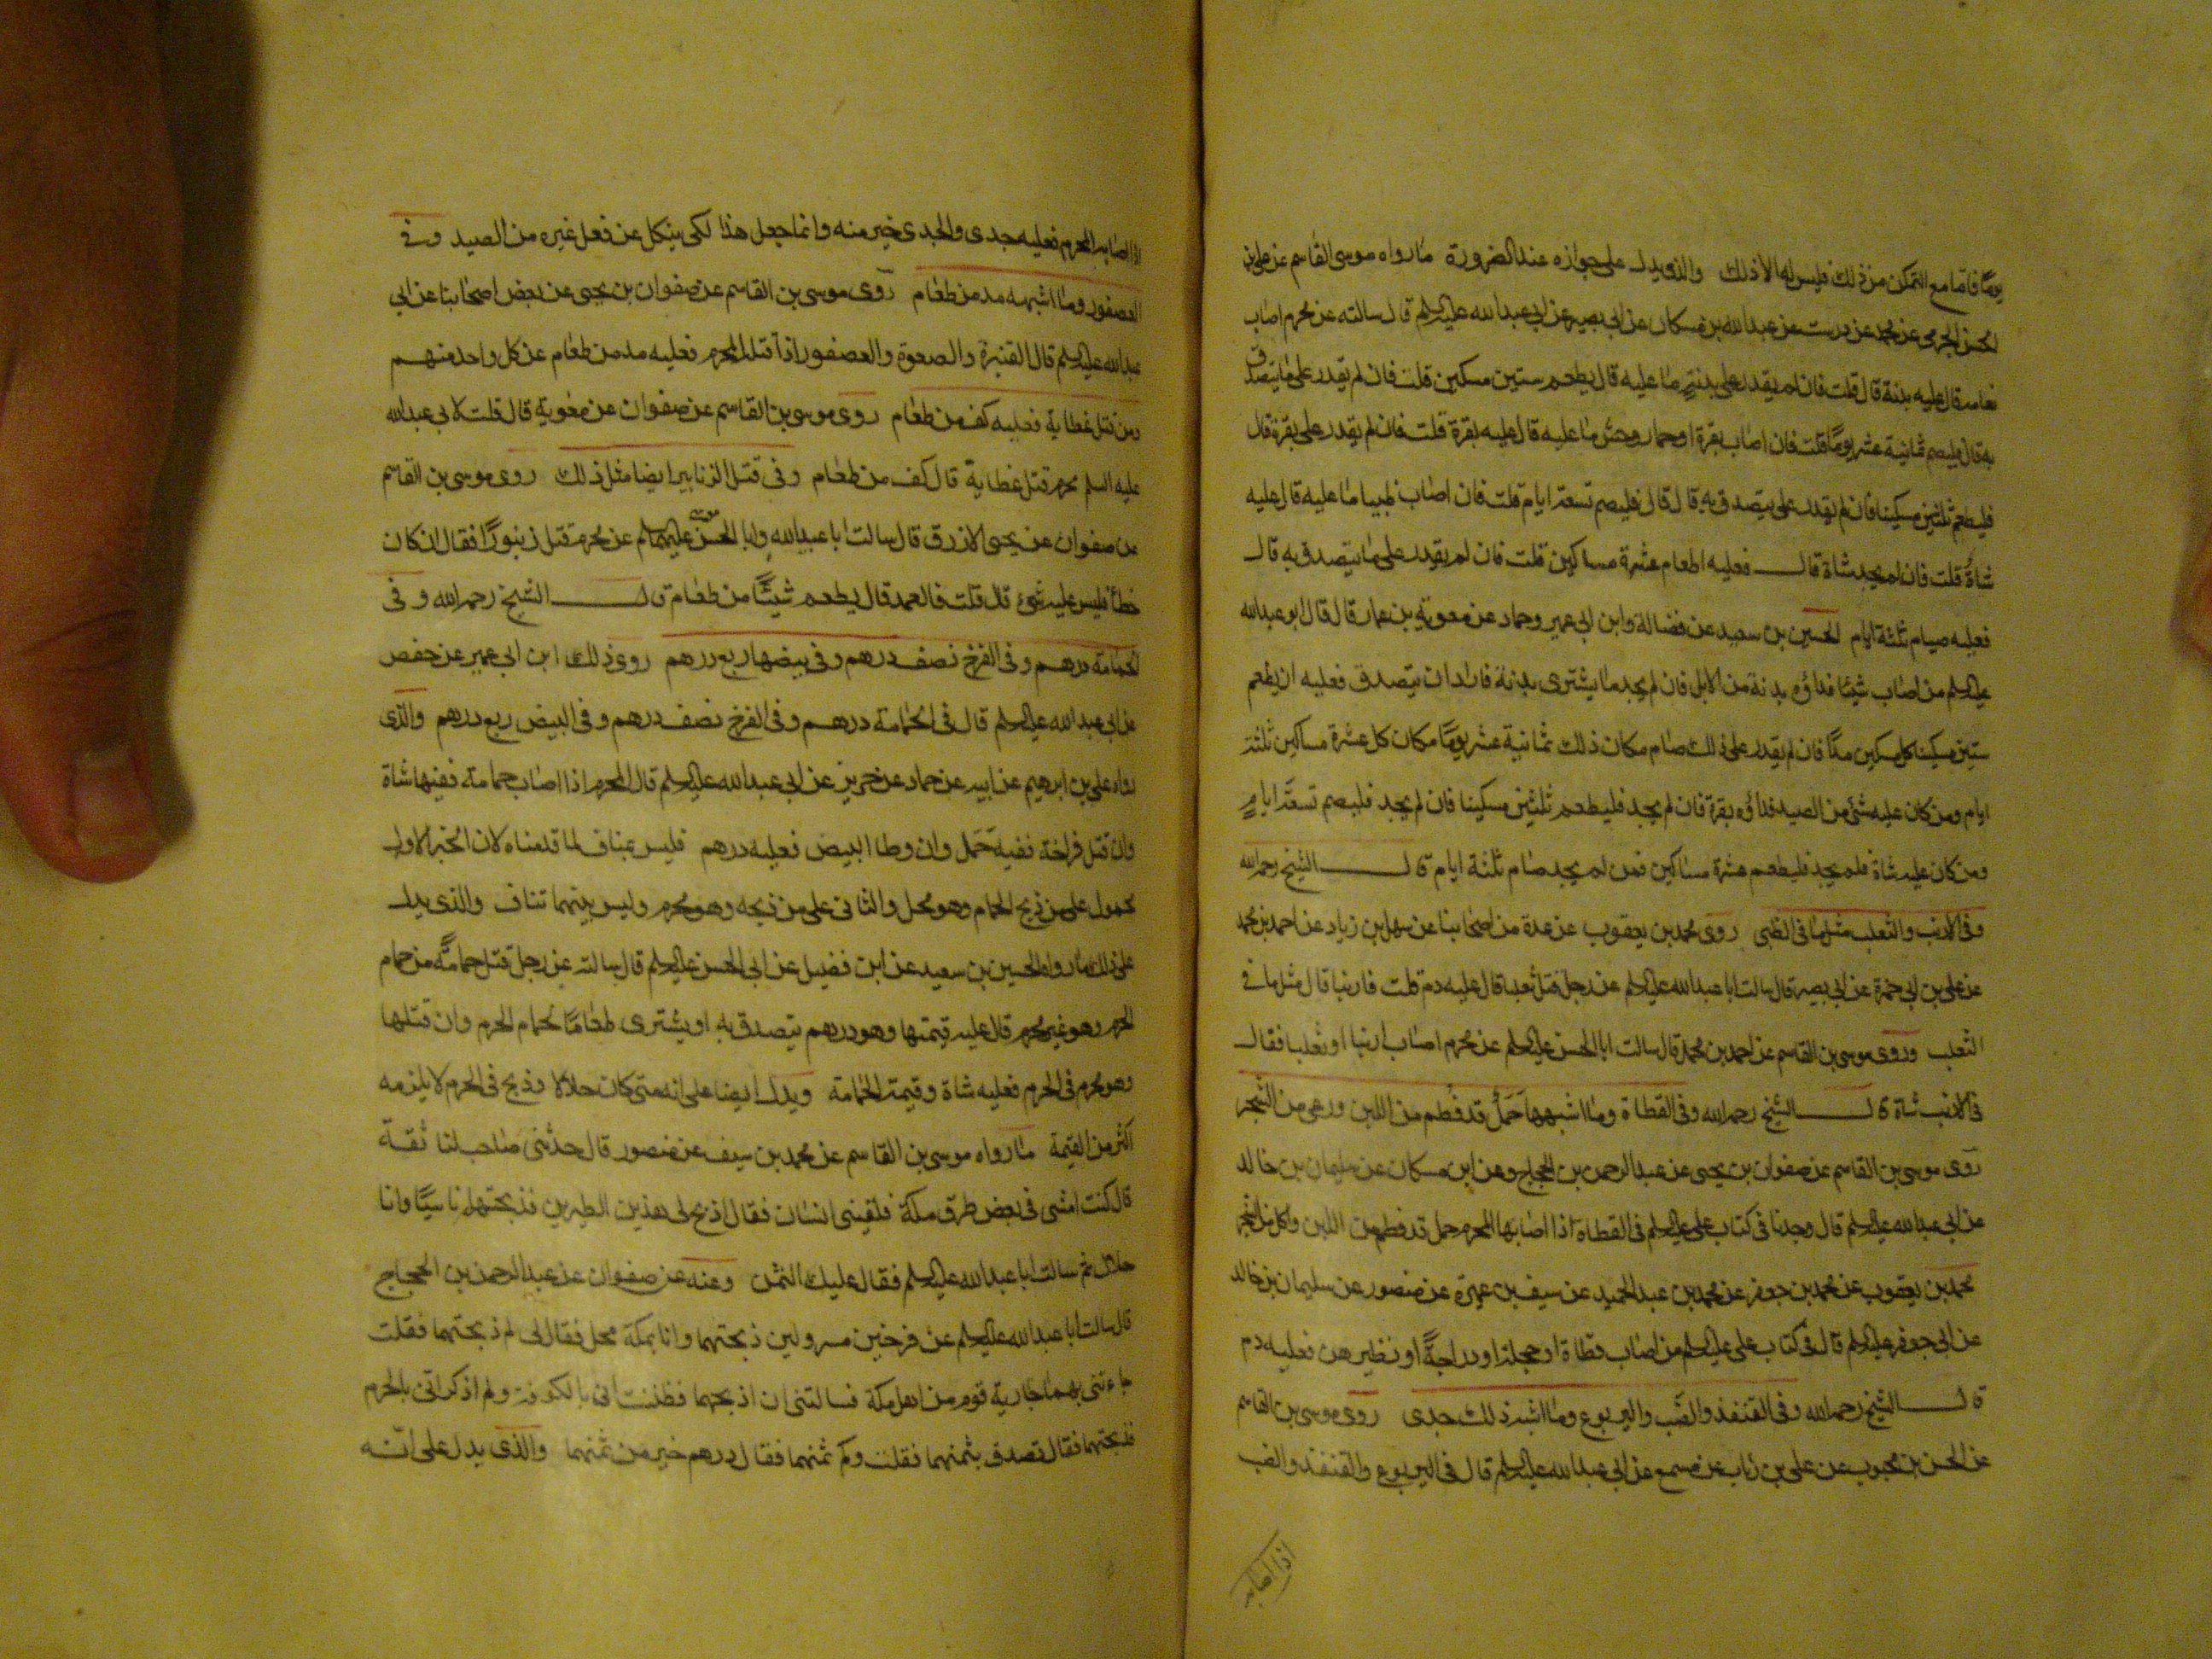 يومًا فاما مع التمكن من ذلك فليس له الا ذلك والذي يدل على جوازه عند الضرورة ما رواه موسى القاسم عن علي بن
الحسن الجرمي عن محمد عن درست عن عبد الله بن مسكان عن ابي بصير عن ابي عبد الله عليه السلم قال سالته عن محرم اصاب
نعامة قال عليه بدنة قال قلت فان لم يقدر على بدنة ما عليه قال يطعم ستين مسكين قلت فان لم يقدر على ما يتصدق
به قال فليصم ثمانية عشر يومًا قلت فان اصاب بقرة او حمار وحش ما عليه قال عليه بقرة قلت فان لم يقدر على بقرة قال
فليطعم ثلثين مسكينا فان لم يقدر على يتصدق به قال قال فليصم تسعة ايام قلت فان اصاب ظبيا ما عليه قال عليه
شاةٌ قلت فان لم يجد شاة قال فعليه اطعام عشرة مساكين قلت فان لم يقدر على ما يتصدق به قال
فعليه صيام ثلثة ايام الحسين بن سعيد عن فضالة وابن ابي عمير وحماد عن معوية بن عمار قال قال ابو عبد الله
عليه السلم من اصاب شيئا فداؤه بدنة من الابل فان لم يجد ما يشترى بدنة فاراد ان يتصدق فعليه ان يطعم
ستين مسكينا كل مسكين مدًّا فان لم يقدر على ذلك صام مكان ذلك ثمانية عشر يومًا مكان كل عشرة مساكين ثلثة
ايام ومن كان عليه شئ من الصيد فداؤه بقرة فان لم يجد فليطعم ثلثين مسكينا فان لم يجد فليصم تسعة ايامٍ
ومن كان عليه شاة فلم يجد فليطعم عشرة مساكين فمن لم يجد صام ثلثة ايام قال الشيخ رحمه الله
وفى الارنب والثعلب مثل ما فى الظبى روى محمد بن يعقوب عن عدة من اصحابنا عن سهل بن زياد عن احمد بن محمد
عن علي بن ابي حمزة عن ابي بصير قال سالت ابا عبد الله عليه السلم عن رجل قتل ثعلبا قال عليه دم قلت فارنبا قال مثل ما في
الثعلب وروى موسى بن القاسم عن احمد بن محمد قال سالت ابا الحسن عليه السلم عن محرم اصاب ارنبا او ثعلبا فقال
فى الارنب شاة قال الشيخ رحمه الله وفى القطاة وما اشبهها حَمَلٌ قد فُطم من اللبن ورعى من الشجر
روى موسى بن القاسم عن صفوان بن يحيى عن عبد الرحمن بن الحجاج وعن ابن مسكان عن سليمان بن خالد
عن ابي عبد الله عليه السلم قال وجدنا فى كتاب علي عليه السلم فى القطاة اذا اصابها المحرم حمل قد فطم من اللبن واكل من الشجر
محمد بن يعقوب عن محمد بن جعفر عن محمد بن عبد الحميد عن سيف بن عميرة عن منصور عن سليمان بن خالد
عن ابي جعفر عليه السلم قال فى كتاب علي عليه السلم من اصاب قطاة او حجلة او دراجةً او نظيرهن فعليه دم
قال الشيخ رحمه الله وفى القنفذ والضب واليربوع وما اشبه ذلك جدى روى موسى بن القاسم
عن الحسن بن محبوب عن علي بن رئاب عن مسمع عن ابي عبد الله عليه السلم قال فى اليربوع والقنفذ والضب
اذا اصابه
اذا اصابه المحرم فعليه جدى والجدى خير منه وانما جعل هذا لكى ينكل عن فعل غيره من الصيد وفى
العصفور وما اشبهه مد من طعام روى موسى بن القاسم عن صفوان بن يحيى عن بعض اصحابنا عن ابي
عبد الله عليه السلم قال القنبرة والصعوة والعصفور اذا قتله المحرم فعليه مد من طعام عن كل واحد منهم
ومن قتل عظاية فعليه كف من طعام روى موسى بن القاسم عن صفوان عن معوية قال قلت لابي عبد الله
عليه السلم محرم قتل عظاية قال كف من طعام وفى قتل الزنابير ايضا مثل ذلك روى موسى بن القاسم
عن صفوان عن يحيى الازرق قال سالت ابا عبد الله وابا الحسن موسى عليهما السلم عن محرم قتل زنبورًا فقال ان كان
خطأ فليس عليه شئ قال قلت فالعمد قال يطعم شيئًا من طعام قال الشيخ رحمه الله وفى
الحمامة درهم وفى الفرخ نصف درهم وفى بيضها ربع درهم روى ذلك ابن ابي عمير عن حفص
عن ابي عبد الله عليه السلم قال فى الحمامة درهم وفى الفرخ نصف درهم وفى البيض ربع درهم والذى
رواه علي بن ابرهيم عن ابيه عن حماد عن حريز عن ابي عبد الله عليه السلم قال المحرم اذا اصاب حمامة ففيها شاة
وان قتل فراخة ففيه حَمَل وان وطا البيض فعليه درهم فليس بمناف لما قدمناه لان الخبر الاول
محمول على من ذبح الحمام وهو محل والثانى على من ذبحه وهو محرم وليس بينهما تناف والذى يدل
على ذلك ما رواه الحسين بن سعيد عن ابن فضيل عن ابي الحسن عليه السلم قال سالته عن رجل قتل حمامةً من حمام
الحرم وهو غير محرم قال عليه قيمتها وهو درهم يتصدق به او يشترى طعامًا لحمام الحرم وان قتلها
وهو محرم فى الحرم فعليه شاة وقيمة الحمامة ويدل ايضا على انه متى كان حلالا وذبح فى الحرم لا يلزمه
اكثر من القيمة ما رواه موسى بن القاسم عن محمد بن سيف عن منصور قال حدثنى صاحب لنا ثقة
قال كنت امشى فى بعض طرق مكة فلقينى انسان فقال اذبح لى هذين الطيرين فذبحتهما ناسيًا وانا
حلال ثم سالت ابا عبد الله عليه السلم فقال عليك الثمن وعنه عن صفوان عن عبد الرحمن بن الحجاج
قال سالت ابا عبد الله عليه السلم عن فرخين مسرولين ذبحتهما وانا بمكة محل فقال لى لم ذبحتهما فقلت
جاءتنى بهما جارية قوم من اهل مكة فسالتنى ان اذبحهما فظننت انى بالكوفة ولم اذكر انى بالحرم
فذبحتهما فقال تصدق بثمنهما فقلت وكم ثمنهما فقال درهم خير من ثمنهما والذى يدل على انه